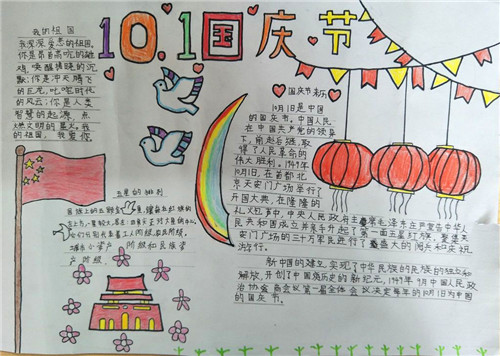 10.1国庆节
我的祖国
我深深爱恋的祖国。
你是昂首高吭的雄
鸡,唤醒拂晓的沉
默;你是冲天腾飞
的巨龙,叱咤时代
的风云;你是人类
智慧的起源,点
燃文明的星火。我
的祖国,我爱你
国庆节来历
10月1日是中国
的国庆节。中国人民
在中国共产党的领导
下,前赴后继,取
得了人民革命的
伟大胜利。1949年
10月1日,在首都北
京天安门广场举行了
开国大典,在隆隆的
礼炮声中,中央人民政府主席毛泽东庄严宣告中华人
民共和国成立并亲手升起了第一面五星红旗。聚集天
安门广场的三十万军民进行了盛大的阅兵和庆祝
游行。
新中国的建立,实现了中华民族的民族的独立和
解放,开创了中国历史的新纪元。1949年9月中国人民政
治协会商会议第一届全体会议决定每年的10月1日为中国
的国庆节。
五星的排列
产阶级